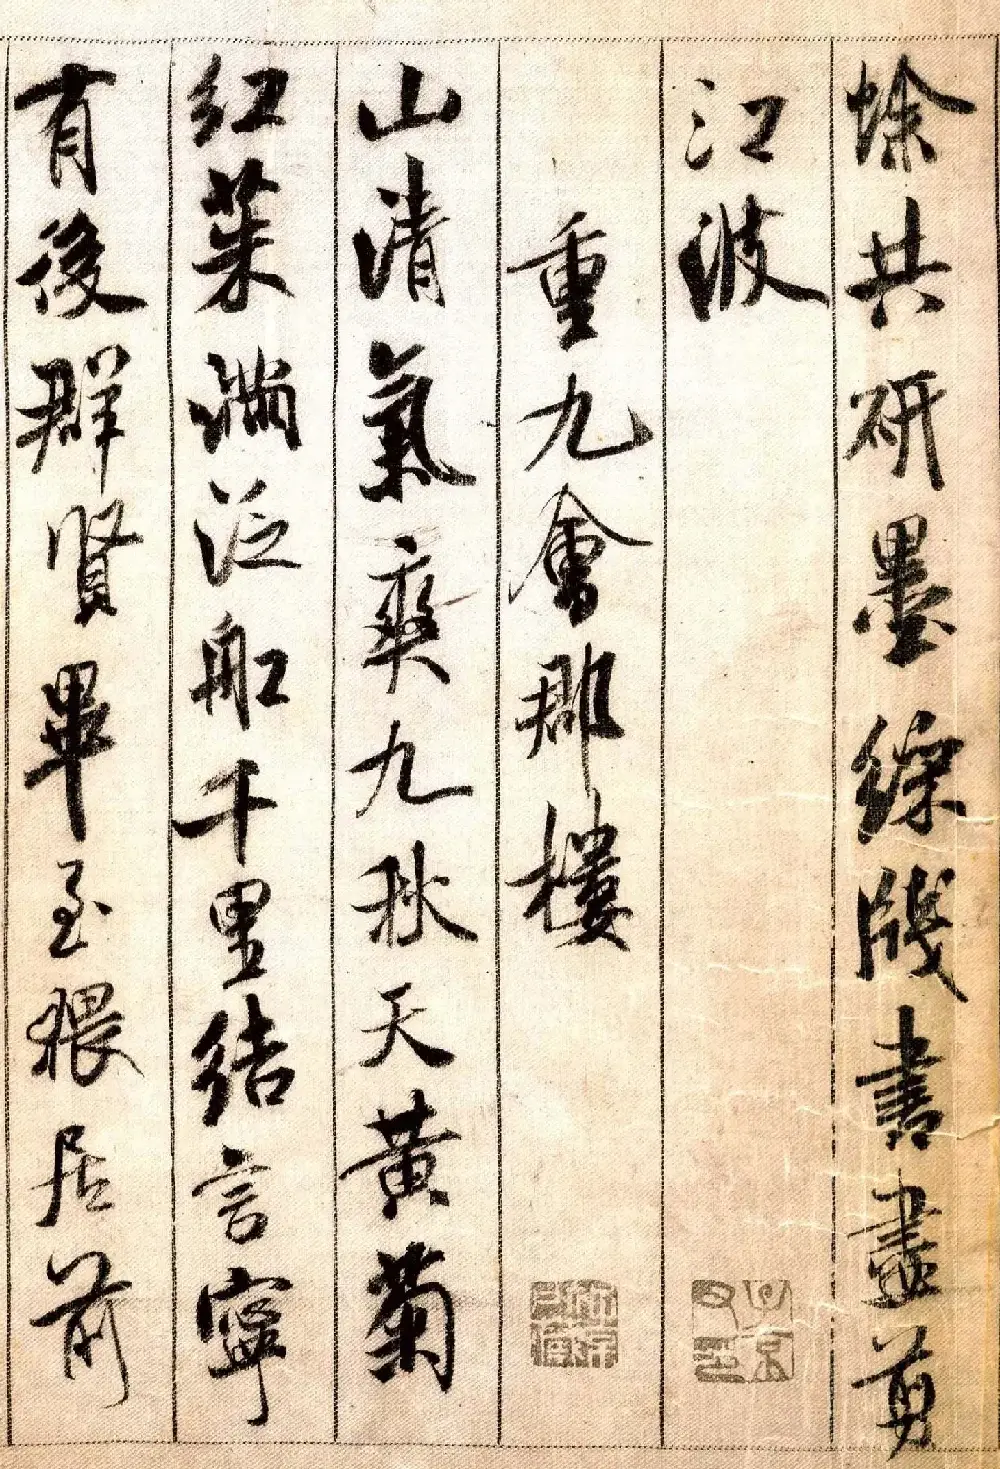 蜍共研墨綵牋書盡剪
江波
重九會郡樓
山清氣爽九秋天黃菊
紅茱滿泛舩千里結言寧
有後群賢畢至猥居前